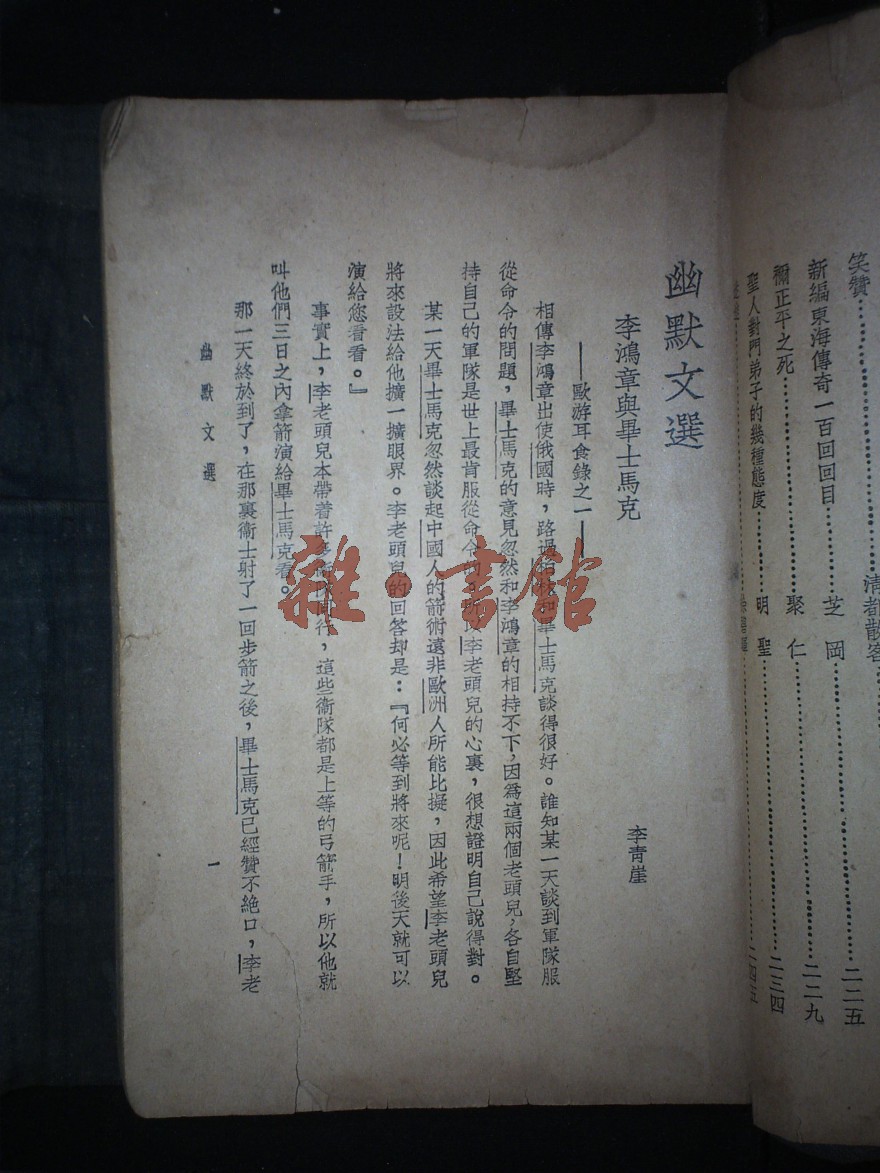 笑贊
清都散客
新編東海傳奇一百回回目 芝岡 二二五
禰正平之死 聚仁 二二九
聖人對門弟子的幾種態度 明聖 二三四
二四五
幽默文選
李鴻章與畢士馬克 李青崖
——歐游耳食錄之一——
相傳李鴻章出使俄國時,路過柏林和畢士馬克談得很好。誰知某一天談到軍隊服
從命令的問題,畢士馬克的意見忽然和李鴻章的相持不下,因爲這兩個老頭兒,各自堅
持自己的軍隊是世上最肯服從命令的。李老頭兒的心裏,很想證明自己說得對。
某一天畢士馬克忽然談起中國人的箭術遠非歐洲人所能比擬,因此希望李老頭兒
將來設法給他擴一擴眼界。李老頭兒的回答却是:『何必等到將來呢!明後天就可以
演給您看看。』
事實上,李老頭兒本帶着許多衞隊同行,這些衞隊都是上等的弓箭手,所以他就
叫他們三日之內拿箭演給畢士馬克看。
那一天終於到了,在那裏衞士射了一回步箭之後,畢士馬克已經贊不絕口,李老
幽默文選
一
雜·書館